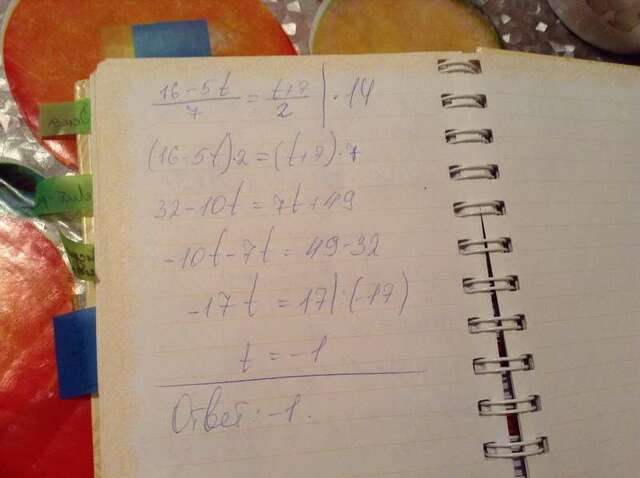 16-5t/7 = t+7/2 | · 14
(16-5t)·2 = (t+7)·7
32-10t = 7t+49
-10t-7t = 49-32
-17t = 17 | :(-17)
t = -1
Ответ: -1.